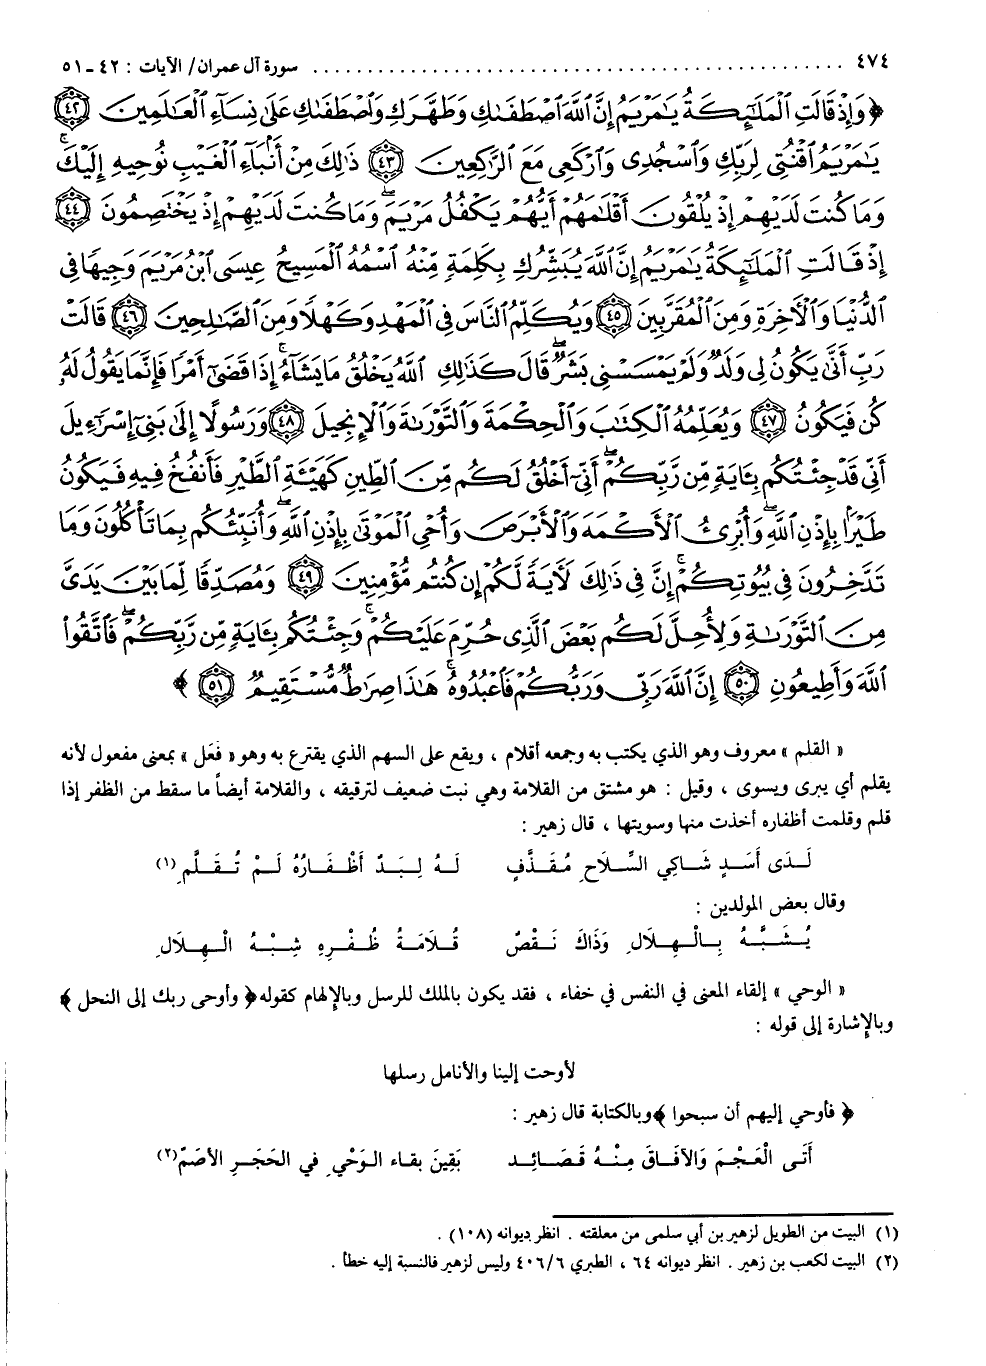 ٤٧٤ ........................................ سورة آل عمران/ الآيات : ٤٢ - ٥١
﴿ وَإِذْ قَالَتِ الْمَلَٰٓئِكَةُ يَٰمَرْيَمُ إِنَّ اللَّهَ اصْطَفَىٰكِ وَطَهَّرَكِ وَاصْطَفَىٰكِ عَلَىٰ نِسَآءِ الْعَٰلَمِينَ ﴿٤٢﴾
يَٰمَرْيَمُ اقْنُتِى لِرَبِّكِ وَاسْجُدِى وَارْكَعِى مَعَ الرَّٰكِعِينَ ﴿٤٣﴾ ذَٰلِكَ مِنْ أَنۢبَآءِ الْغَيْبِ نُوحِيهِ إِلَيْكَ ۚ
وَمَا كُنتَ لَدَيْهِمْ إِذْ يُلْقُونَ أَقْلَٰمَهُمْ أَيُّهُمْ يَكْفُلُ مَرْيَمَ ۖ وَمَا كُنتَ لَدَيْهِمْ إِذْ يَخْتَصِمُونَ ﴿٤٤﴾
إِذْ قَالَتِ الْمَلَٰٓئِكَةُ يَٰمَرْيَمُ إِنَّ اللَّهَ يُبَشِّرُكِ بِكَلِمَةٍ مِّنْهُ اسْمُهُ الْمَسِيحُ عِيسَى ابْنُ مَرْيَمَ وَجِيهًا فِى
الدُّنْيَا وَالْأَخِرَةِ وَمِنَ الْمُقَرَّبِينَ ﴿٤٥﴾ وَيُكَلِّمُ النَّاسَ فِى الْمَهْدِ وَكَهْلًا وَمِنَ الصَّٰلِحِينَ ﴿٤٦﴾ قَالَتْ
رَبِّ أَنَّىٰ يَكُونُ لِى وَلَدٌ وَلَمْ يَمْسَسْنِى بَشَرٌ ۖ قَالَ كَذَٰلِكِ اللَّهُ يَخْلُقُ مَا يَشَآءُ ۚ إِذَا قَضَىٰٓ أَمْرًا فَإِنَّمَا يَقُولُ لَهُۥ
كُن فَيَكُونُ ﴿٤٧﴾ وَيُعَلِّمُهُ الْكِتَٰبَ وَالْحِكْمَةَ وَالتَّوْرَىٰةَ وَالْإِنجِيلَ ﴿٤٨﴾ وَرَسُولًا إِلَىٰ بَنِىٓ إِسْرَٰٓءِيلَ
أَنِّى قَدْ جِئْتُكُم بِـَٔايَةٍ مِّن رَّبِّكُمْ ۖ أَنِّىٓ أَخْلُقُ لَكُم مِّنَ الطِّينِ كَهَيْـَٔةِ الطَّيْرِ فَأَنفُخُ فِيهِ فَيَكُونُ
طَيْرًۢا بِإِذْنِ اللَّهِ ۖ وَأُبْرِئُ الْأَكْمَهَ وَالْأَبْرَصَ وَأُحْىِ الْمَوْتَىٰ بِإِذْنِ اللَّهِ ۖ وَأُنَبِّئُكُم بِمَا تَأْكُلُونَ وَمَا
تَدَّخِرُونَ فِى بُيُوتِكُمْ ۚ إِنَّ فِى ذَٰلِكَ لَأَيَةً لَّكُمْ إِن كُنتُم مُّؤْمِنِينَ ﴿٤٩﴾ وَمُصَدِّقًا لِّمَا بَيْنَ يَدَىَّ
مِنَ التَّوْرَىٰةِ وَلِأُحِلَّ لَكُم بَعْضَ الَّذِى حُرِّمَ عَلَيْكُمْ ۚ وَجِئْتُكُم بِـَٔايَةٍ مِّن رَّبِّكُمْ ۖ فَاتَّقُوا
اللَّهَ وَأَطِيعُونِ ﴿٥٠﴾ إِنَّ اللَّهَ رَبِّى وَرَبُّكُمْ فَاعْبُدُوهُ ۚ هَٰذَا صِرَٰطٌ مُّسْتَقِيمٌ ﴿٥١﴾ ﴾
« القلم » معروف وهو الذي يكتب به وجمعه أقلام ، ويقع على السهم الذي يقترع به وهو « فَعَل » بمعنى مفعول لأنه
يقلم أي يبرى ويسوى ، وقيل : هو مشتق من القلامة وهي نبت ضعيف لترقيقه ، والقلامة أيضاً ما سقط من الظفر إذا
قلم وقلمت أظفاره أخذت منها وسويتها ، قال زهير :
لَدَى أَسَدٍ شَاكِي السِّلَاحِ مُقَذَّفٍ لَهُ لِبَدٌ أَظْفَارُهُ لَمْ تُقَلَّمِ (١)
وقال بعض المولدين :
يُشَبَّهُ بِالْهِلَالِ وَذَاكَ نَقْصٌ قُلَامَةُ ظُفْرِهِ شِبْهُ الْهِلَالِ
« الوحي » إلقاء المعنى في النفس في خفاء ، فقد يكون بالملك للرسل وبالإلهام كقوله ﴿ وأوحى ربك إلى النحل ﴾
وبالإشارة إلى قوله :
لأوحت إلينا والأنامل رسلها
﴿ فأوحي إليهم أن سبحوا ﴾ وبالكتابة قال زهير :
أَتَى الْعَجْمَ وَالآفَاقَ مِنْهُ قَصَائِد بَقِينَ بقاء الوَحْيِ في الحَجَرِ الأصَمّ (٢)
(١) البيت من الطويل لزهير بن أبي سلمى من معلقته . انظر ديوانه (١٠٨) .
(٢) البيت لكعب بن زهير . انظر ديوانه ٦٤ ، الطبري ٤٠٦/٦ وليس لزهير فالنسبة إليه خطأ .